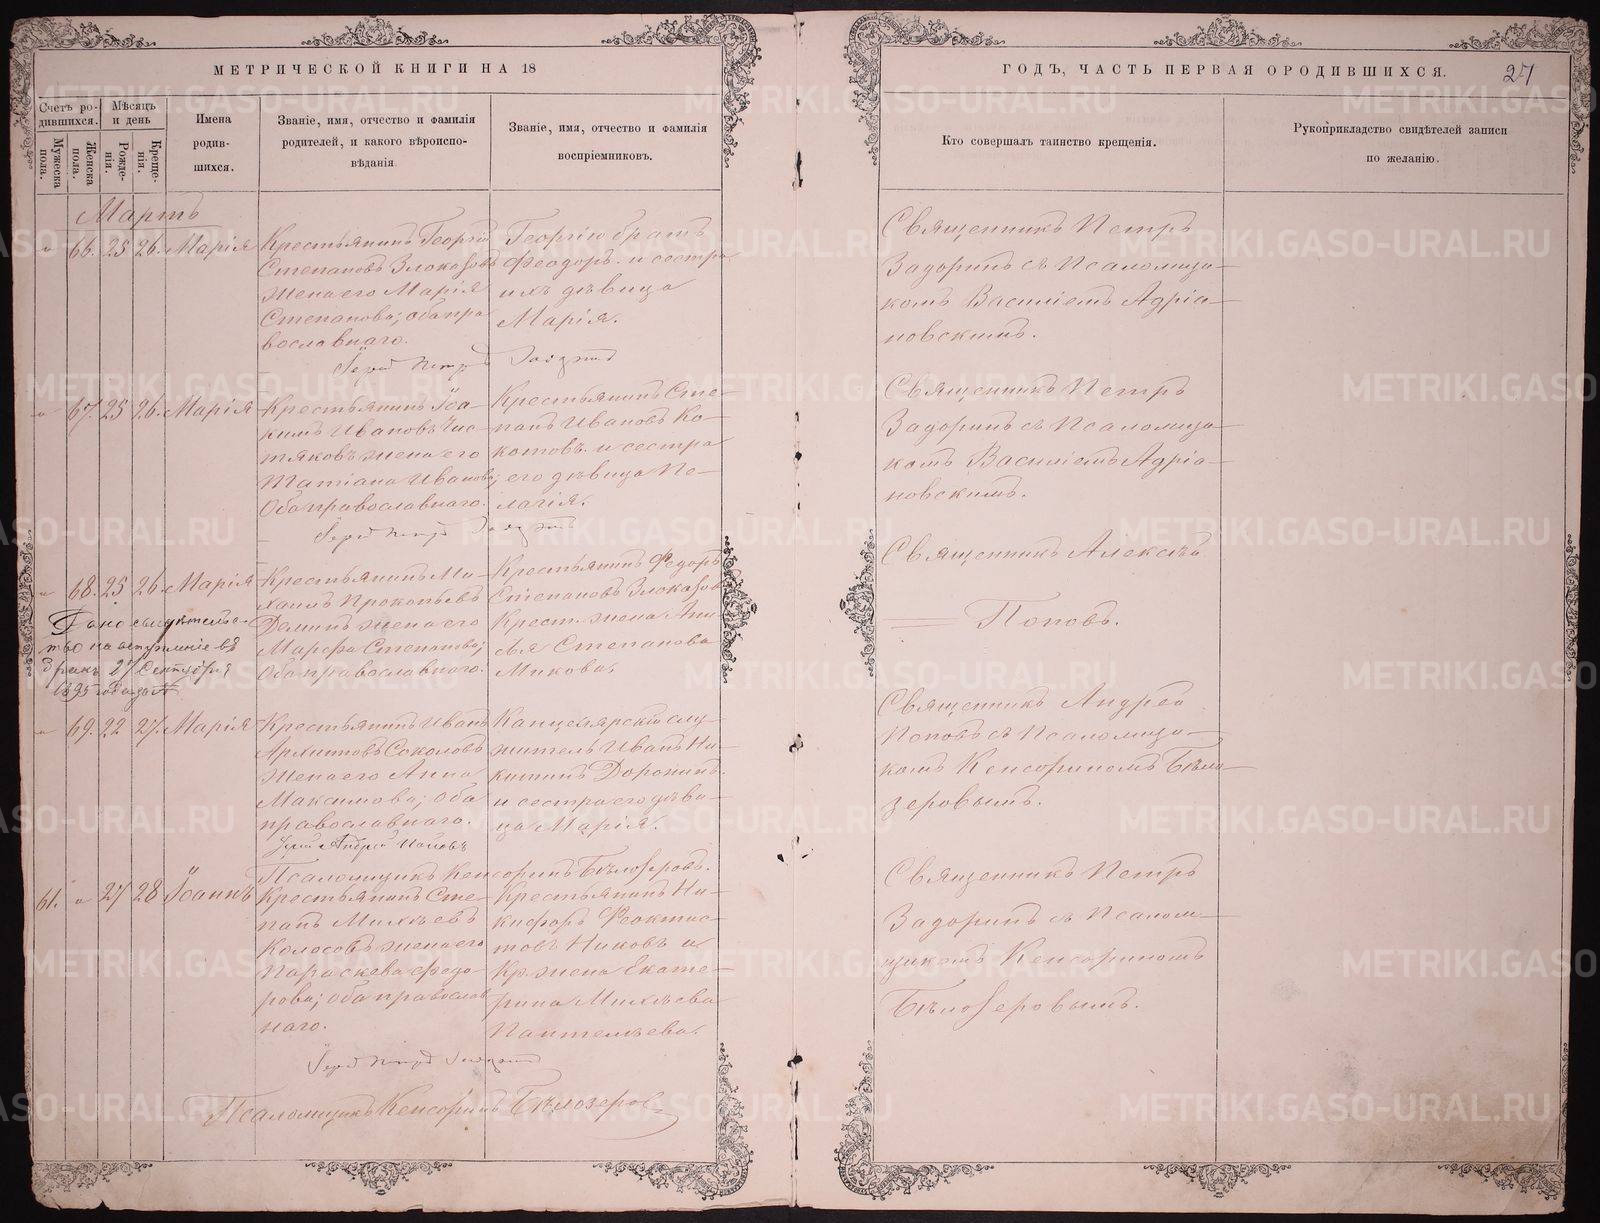 МЕТРИЧЕСКОЙ КНИГИ НА 18
ГОДЪ, ЧАСТЬ ПЕРВАЯ О РОДИВШИХСЯ.
27
Счетъ ро-
дившихся.
Мужеска
пола.
Женска
пола.
Мѣсяцъ
и день
Рожде-
нія.
Креще-
нія.
Имена
родив-
шихся.
Званіе, имя, отчество и фамилія
родителей, и какого вѣроиспо-
вѣданія.
Званіе, имя, отчество и фамилія
воспріемниковъ.
Кто совершалъ таинство крещенія.
Рукоприкладство свидѣтелей записи
по желанію.
Мартъ
66. 25 26. Марія
Крестьянинъ Георгій
Степановъ Злоказовъ
жена его Марія
Степанова; оба пра
вославнаго.
Георгію братъ
Феодоръ и сестра
ихъ дѣвица
Марія.
Священникъ Петръ
Задоринъ съ Псаломщи-
комъ Василіемъ Адріа-
новскимъ.
Іерей Петръ Задоринъ
67. 25 26. Марія
Крестьянинъ Іоа-
кимъ Ивановъ Чис-
тяковъ жена его
Татіана Иванова;
Оба православнаго.
Крестьянинъ Сте-
панъ Ивановъ Ко-
котовъ и сестра
его дѣвица Пе-
лагія.
Священникъ Петръ
Задоринъ съ Псаломщи-
комъ Василіемъ Адріа-
новскимъ.
Іерей Петръ Задоринъ
68. 25 26. Марія
Крестьянинъ Ми-
хаилъ Прокопьевъ
Деминъ жена его
Марфа Степанова;
Оба православнаго.
Крестьянинъ Федоръ
Степановъ Злоказовъ
Крест. жена
Степанова
Священникъ Алексѣй
Поповъ.
Дано свидѣтельс-
тво на вступленіе въ
бракъ 27 Сентября
1895 года за №
69. 22 27. Марія
Крестьянинъ Иванъ
Архиповъ Соколовъ
жена его Анна
Максимова; оба
православнаго.
Канцелярскій слу-
житель Иванъ Ни-
китинъ Доронинъ
и сестра его дѣви-
ца Марія.
Священникъ Андрей
Поповъ съ Псаломщи-
комъ Кенсориномъ Бѣло-
зеровымъ.
Іерей Андрей Поповъ
Псаломщикъ Кенсоринъ Бѣлозеровъ.
61. 27 28 Іоаннъ
Крестьянинъ Сте-
панъ Михѣевъ
Колосовъ жена его
Параскева Федо-
рова; оба православ
наго.
Крестьянинъ Ни-
кифоръ Феоктис-
товъ Никовъ и
Кр. жена Екате-
рина Михѣева
Пантелѣева.
Священникъ Петръ
Задоринъ съ Псалом-
щикомъ Кенсориномъ
Бѣлозеровымъ.
Іерей Петръ Задоринъ
Псаломщикъ Кенсоринъ Бѣлозеровъ
METRIKI.GASO-URAL.RU